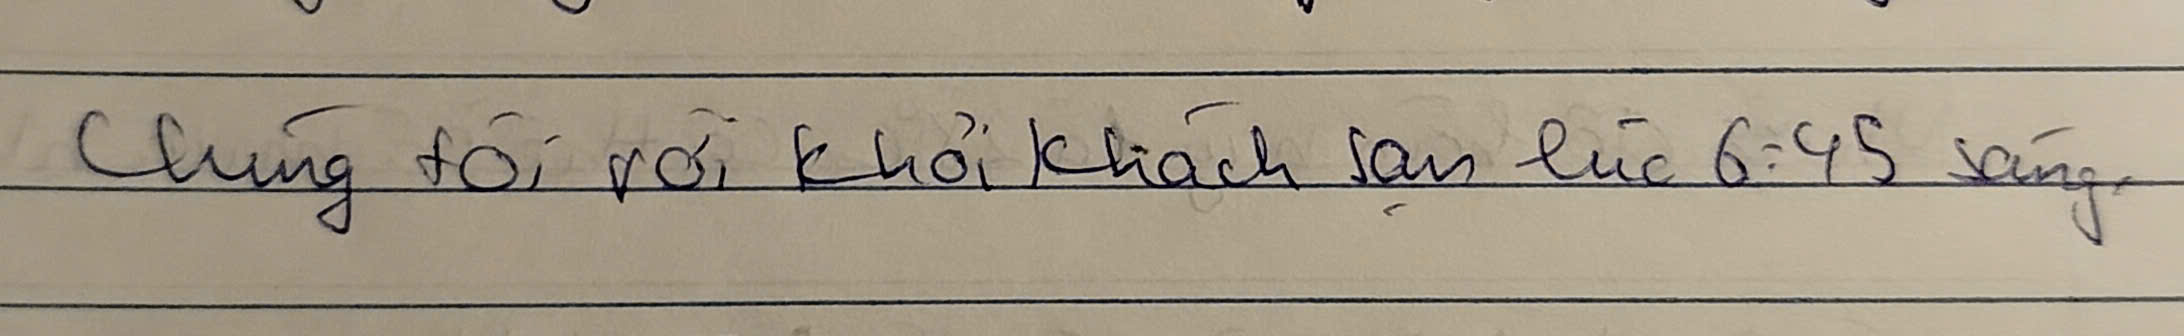 Chúng tôi rời khỏi khách sạn lúc 6:45 sáng.